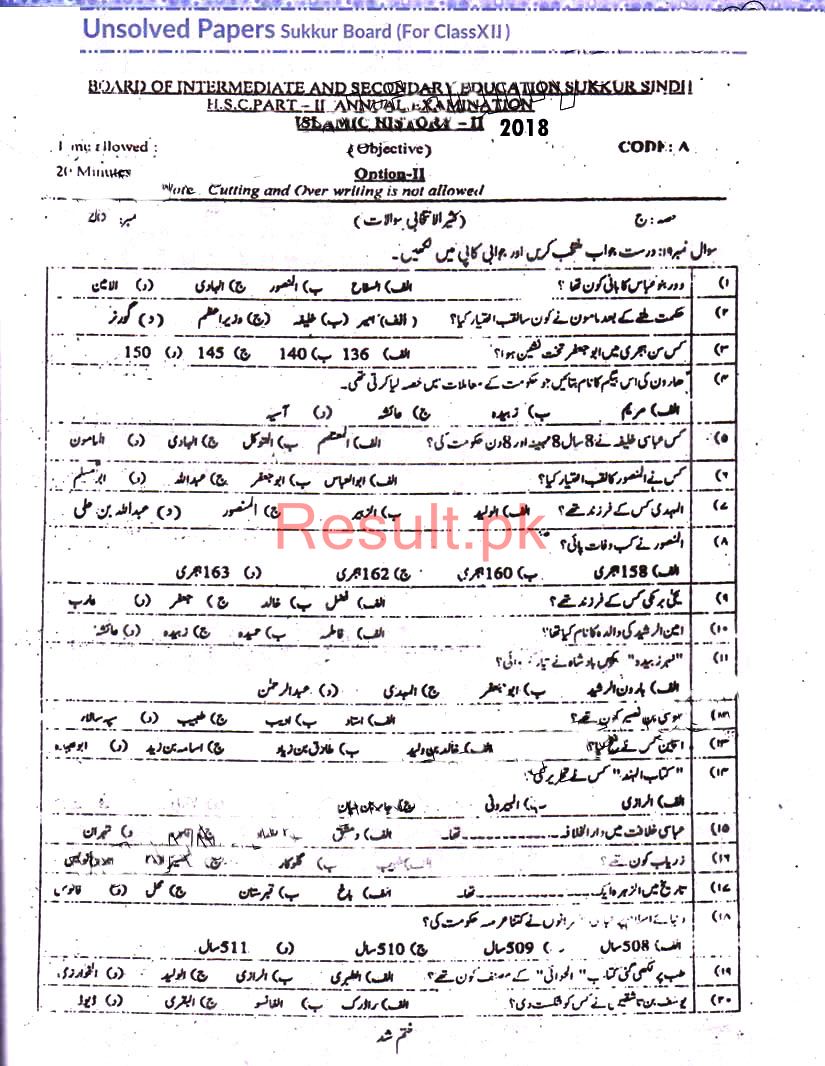 Unsolved Papers Sukkur Board (For ClassXII)
BOARD OF INTERMEDIATE AND SECONDARY EDUCATION SUKKUR SINDH
H.S.C.PART – II ANNUAL EXAMINATION
ISLAMIC HISTORY – II 2018
Time allowed : (Objective) CODE: A
20 Minutes Option-II
Note Cutting and Over writing is not allowed
حصہ: ج (کثیر الانتخابی سوالات)
سوال نمبر ۱۹: درست جواب منتخب کریں اور جوابی کاپی میں لکھیں۔
۱) دور بنو عباس کا بانی کون تھا ؟ الف) السفاح ب) المنصور ج) الہادی د) الامین
۲) حکومت ملنے کے بعد مامون نے کون سا لقب اختیار کیا؟ (الف) امیر (ب) خلیفہ (ج) وزیر اعظم (د) گورنر
۳) کس سن ہجری میں ابو جعفر تخت نشین ہوا؟ الف) 136 ب) 140 ج) 145 د) 150
۴) ھارون کی اس بیگم کا نام بتائیں جو حکومت کے معاملات میں حصہ لیا کرتی تھی۔
الف) مریم ب) زبیدہ ج) عائشہ د) آسیہ
۵) کس عباسی خلیفہ نے 8 سال 8 مہینہ اور 8 دن حکومت کی؟ الف) المعتصم ب) المتوکل ج) الہادی د) المامون
۶) کس نے المنصور کا لقب اختیار کیا؟ الف) ابوالعباس ب) ابو جعفر ج) عبداللہ د) ابو مسلم
۷) المہدی کس کے فرزند تھے؟ الف) الولید ب) الزبیر ج) المنصور د) عبداللہ بن علی
Result.pk
۸) المنصور نے کب وفات پائی؟
الف) 158 ہجری ب) 160 ہجری ج) 162 ہجری د) 163 ہجری
۹) یحیٰ برمکی کس کے فرزند تھے؟ الف) فضل ب) خالد ج) جعفر د)
۱۰) امین الرشید کی والدہ کا نام کیا تھا؟ الف) فاطمہ ب) حمیدہ ج) زبیدہ د) عائشہ
۱۱) "نہر زبیدہ" بادشاہ نے
الف) ہارون الرشید ب) ابو جعفر ج) المہدی د) عبدالرحمٰن
موسیٰ بن نصیر کون تھے؟ الف) استاد ب) ادیب ج) طبیب د) سپہ سالار
۱۳) کس نے الف) خالد بن ولید ب) طارق بن زیاد ج) اسامہ بن زید د)
۱۴) "کتاب الہند" کس نے تحریر کی؟
الف) الرازی ب) البیرونی ج) جابر بن حیان
۱۵) عباسی خلافت میں دارالخلافہ ------------ تھا۔ الف) دمشق د) تہران
۱۶) زریاب کون تھے؟ ب) گلوکار ج)
۱۷) تاریخ میں الزہرہ ایک ------------ تھا۔ الف) باغ ب) قبرستان ج) محل د) فانوس
۱۸) نے کتنا عرصہ حکومت کی؟
الف) 508 سال 509 سال ج) 510 سال د) 511 سال
۱۹) طب پر لکھی گئی کتاب کے مصنف کون تھے؟ الف) الطبری ب) الرازی ج) الولید د) الخوارزمی
۲۰) یوسف بن تاشفین نے کس کو شکست دی؟ الف) راڈرک ب) الفانسو ج) د) ڈیوڈ
ختم شد